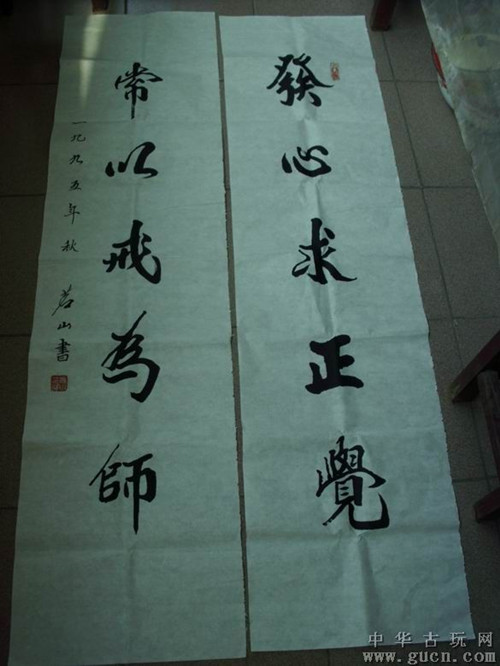 發心求正覺
常以戒為師
一九九五年秋
茗山書
中华古玩网
www.gucn.com